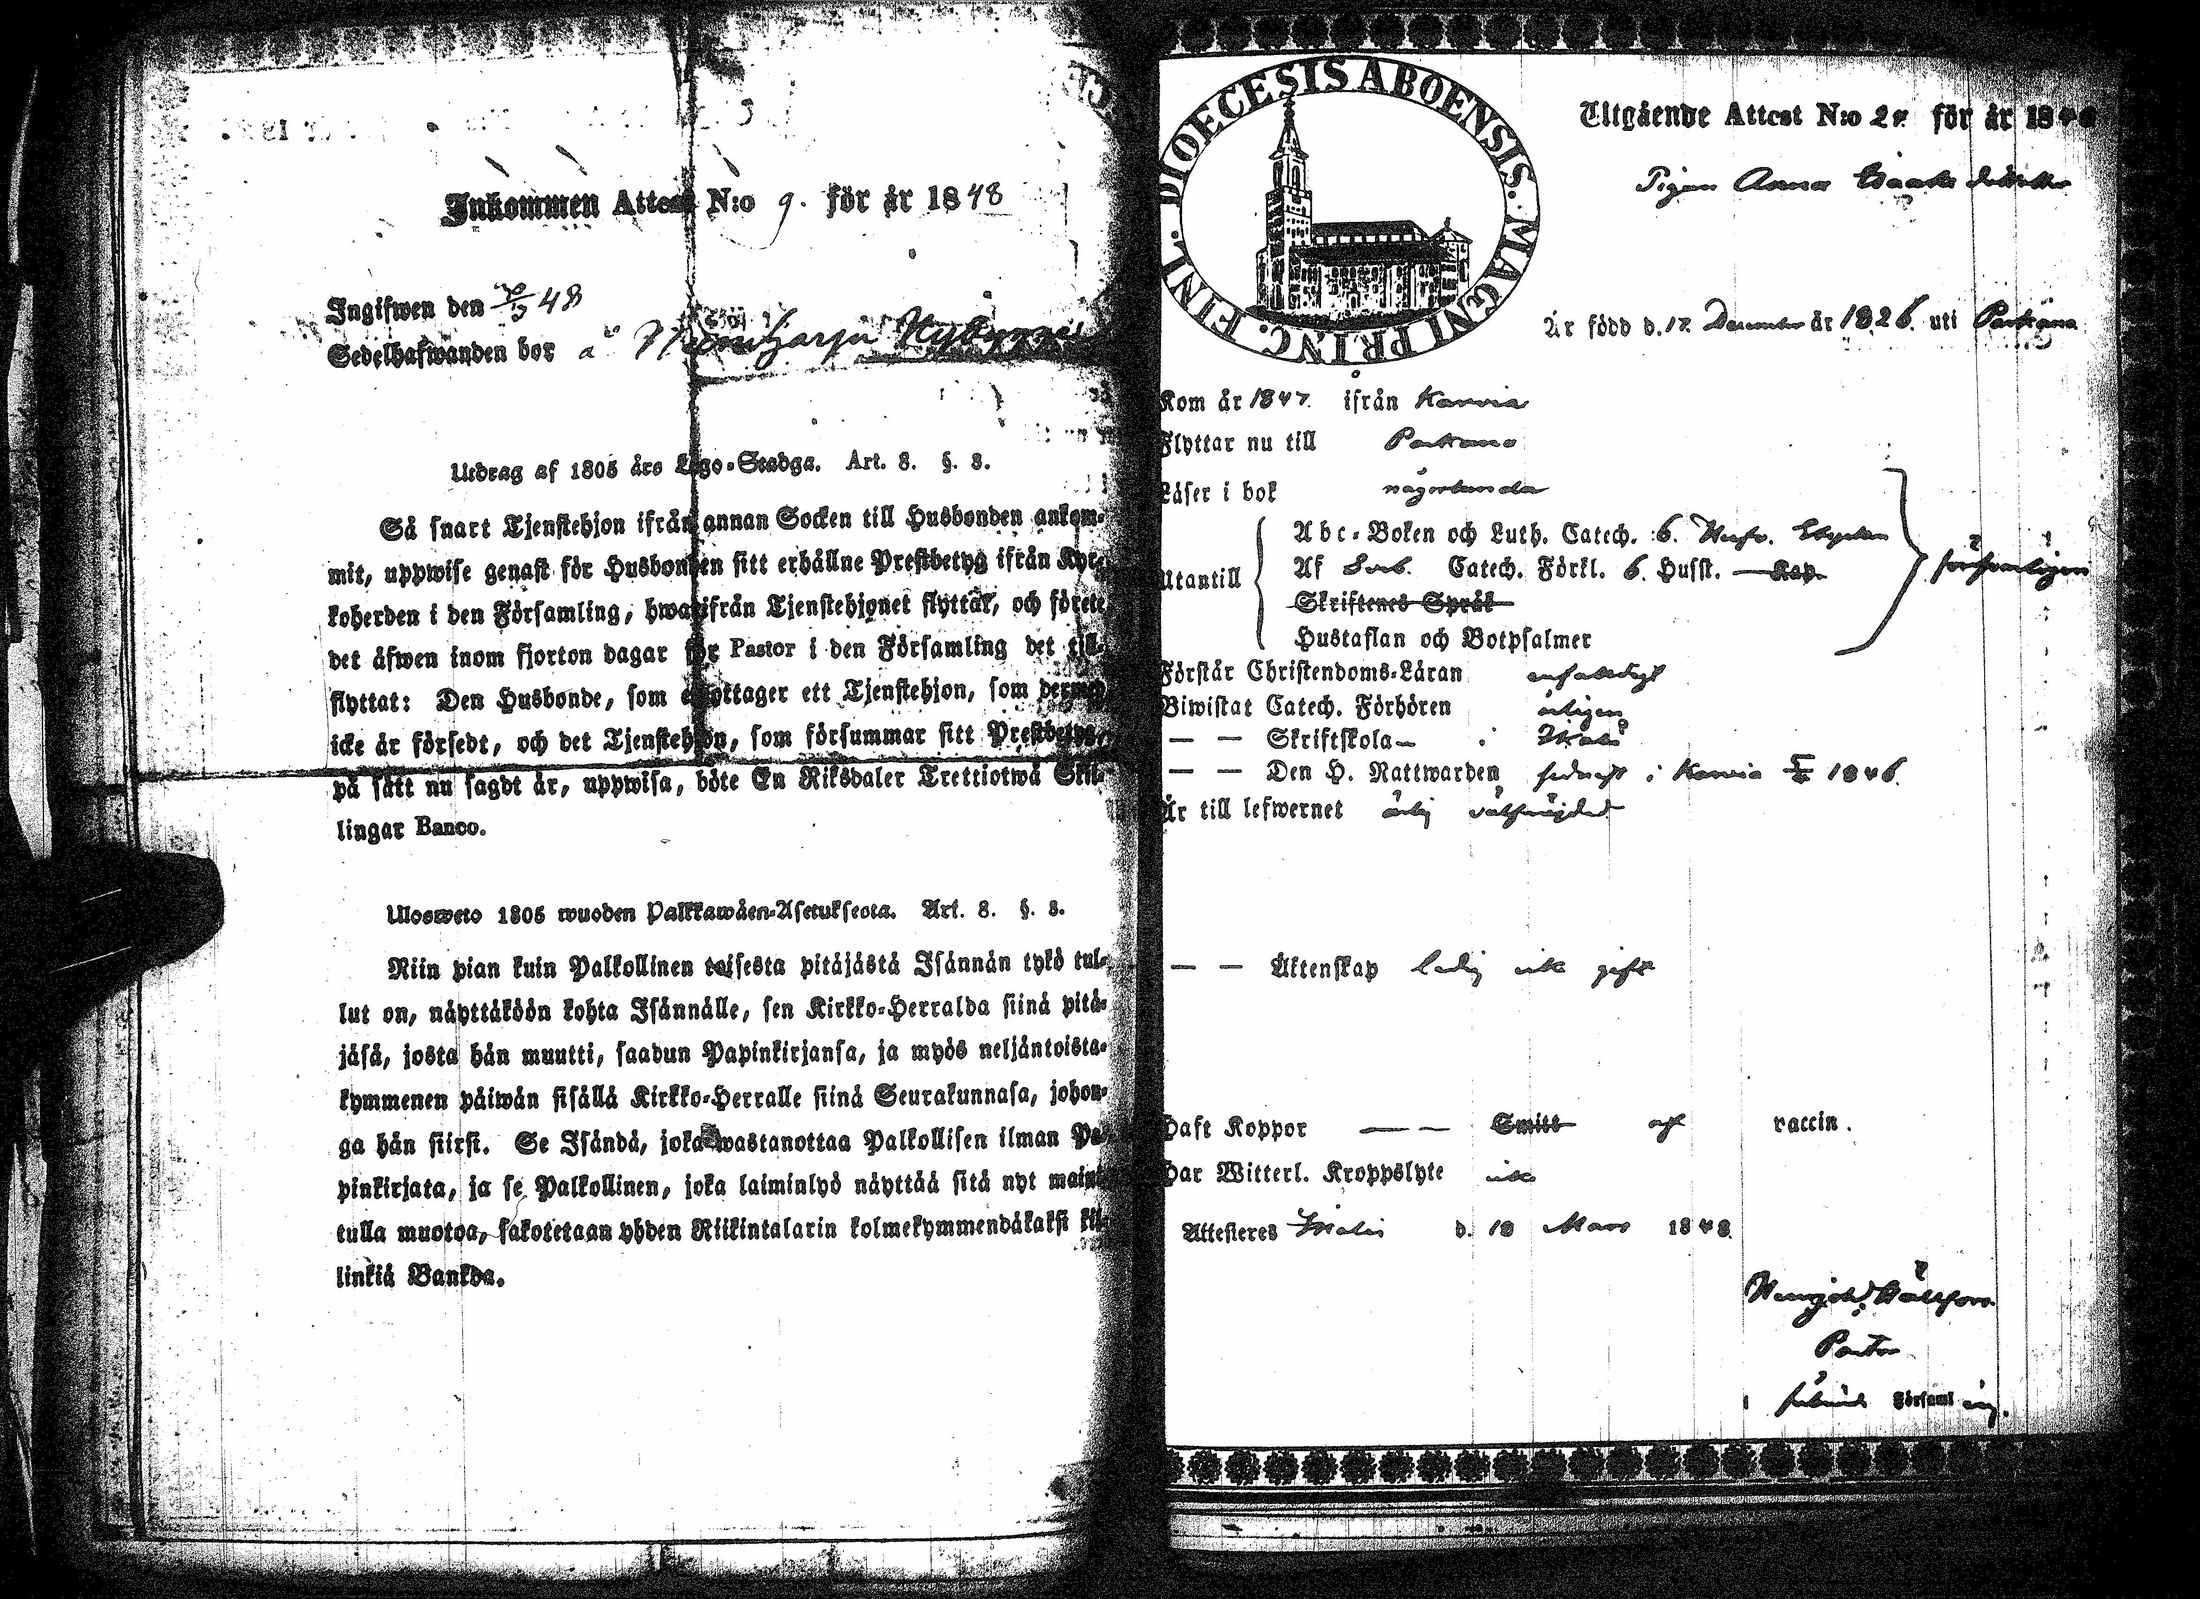 Inkommen Attest N:o 9. för år 1848
Ingifwen den 48
Sedelhafwanden bor å
Utdrag af 1805 års Lego-Stadga. Art. 8. §. 3.
Så snart Tjenstehjon ifrån annan Socken till Husbonden ankom-
mit, uppwise genast för Husbonden sitt erhållne Prestbetyg ifrån Kyr-
koherden i den Församling, hwarifrån Tjenstehjonet flyttat, och förete
det äfwen inom fjorton dagar för Pastor i den Församling det till-
flyttat: Den Husbonde, som emottager ett Tjenstehjon, som dermed
icke är försedt, och det Tjenstehjon, som försummar sitt Prestbetyg,
på sätt nu sagdt är, uppwisa, böte En Riksdaler Trettiotwå Skil-
lingar Banco.
Ulosweto 1805 wuoden Palkkawäen-Asetuksesta. Art. 8. §. 3.
Niin pian kuin Palkollinen toisesta pitäjästä Isännän tykö tul-
lut on, näyttäköön kohta Isännälle, sen Kirkko-Herralda siinä pitä-
jäsä, josta hän muutti, saadun Papinkirjansa, ja myös neljäntoista-
kymmenen päiwän sisällä Kirkko-Herralle siinä Seurakunnasa, johon-
ga hän siirsi. Se Isändä, joka wastanottaa Palkollisen ilman Pa-
pinkirjata, ja se Palkollinen, joka laiminlyö näyttää sitä nyt maini-
tulla muotoa, sakotetaan yhden Riikintalarin kolmekymmendäkaksi kil-
linkiä Bankda.
DIOECESIS ABOENSIS. MAGNI PRINC. FINL.
Utgående Attest N:o 24. för år 1848
Pigan Anna Isaaks dotter
Är född d. 17. December år 1826. uti Parkano
Kom år 1847. ifrån Karvia
Flyttar nu till Parkano
Läser i bok någorlunda
Abc-Boken och Luth. Catech. 6. Hufv. Stycken
Utantill Af Sveb. Catech. Förkl. 6. Husst. Kap. försvarligen
Skriftenes Språk
Hustaflan och Botpsalmer
Förstår Christendoms-Läran enfaldigt
Biwistat Catech. Förhören årligen
— — Skriftskola i
— — Den H. Nattwarden sednast i Karvia 1846.
Är till lefwernet ärlig välfrejdad
— — Äktenskap ledig icke gift
Haft Koppor — — Smitt af vaccin.
Har Witterl. Kroppslyte icke
Attesteres d. 18 Mars 1848.
Pastor
i Församling.